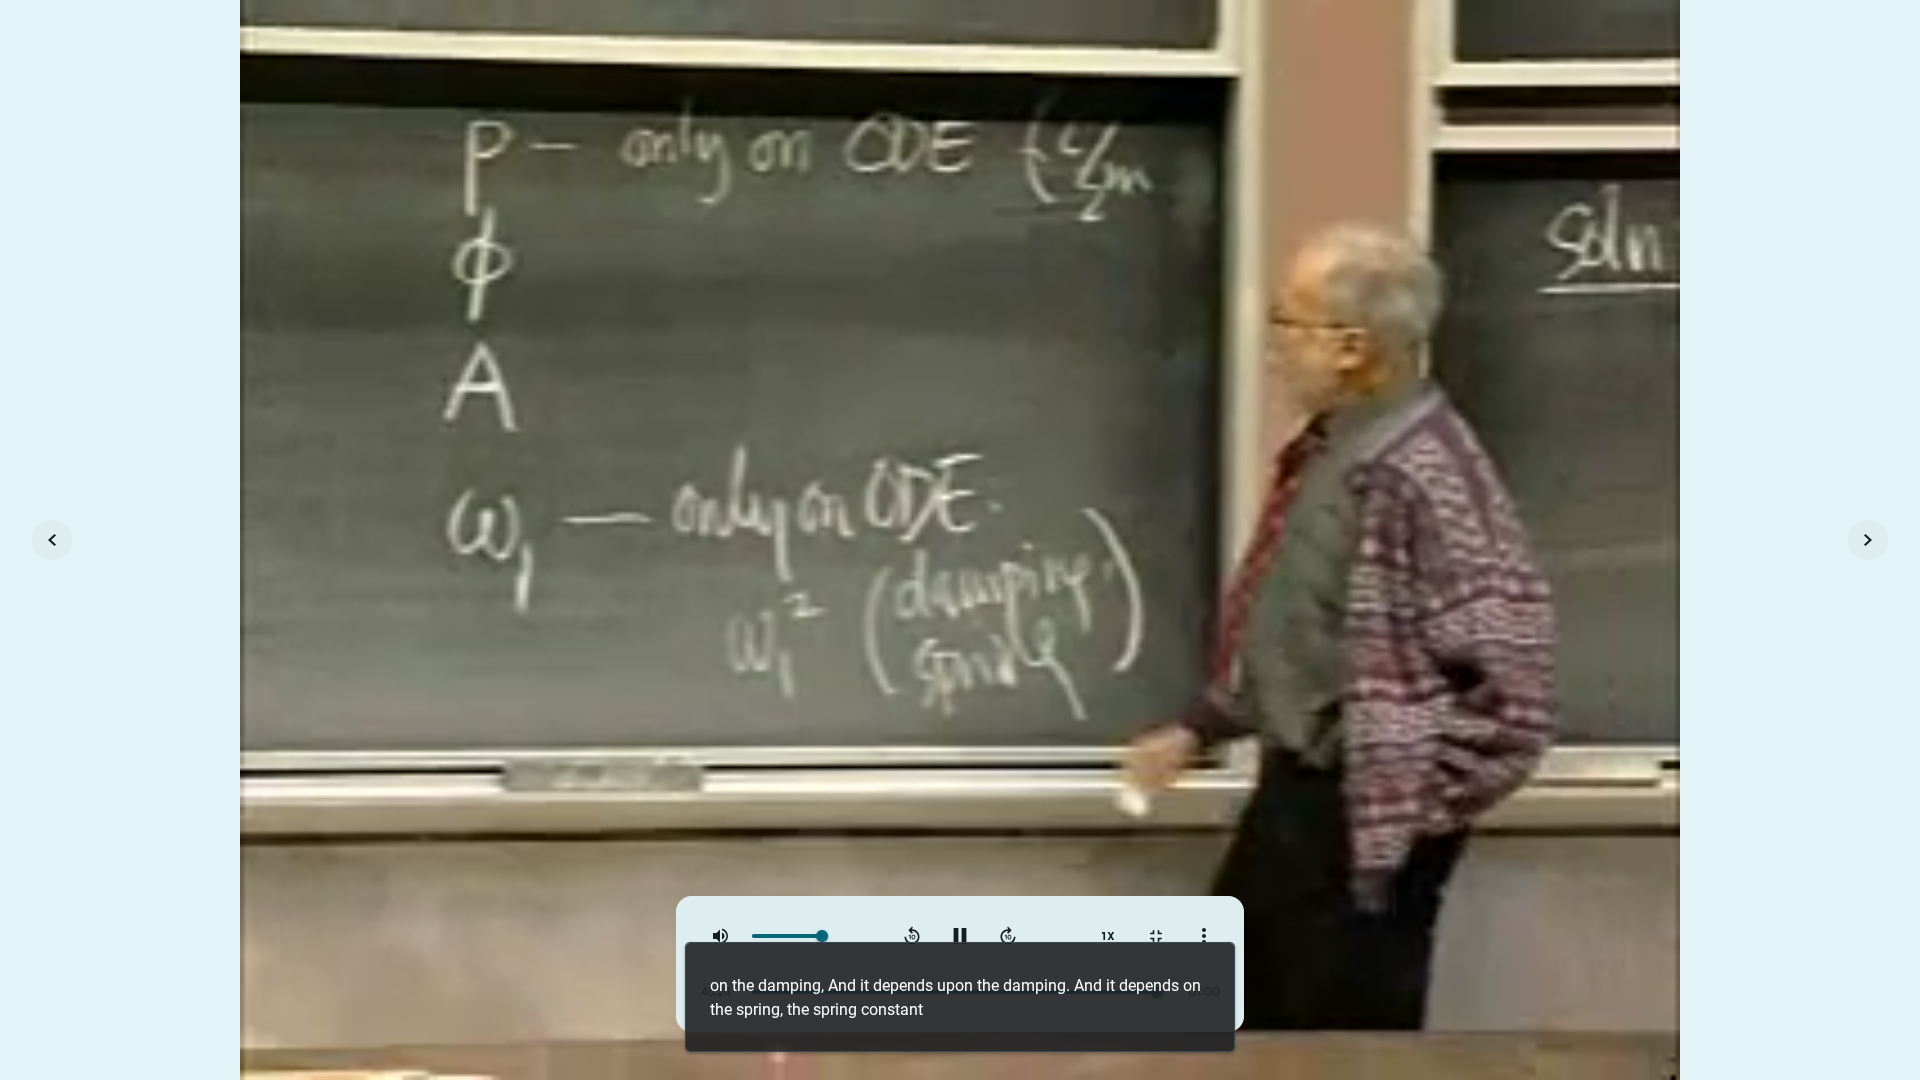 p — only on ODE (c/2m
ϕ
A
ω₁ — only on ODE.
ω₁² (damping,
spring)
Soln
10
10
1X
on the damping, And it depends upon the damping. And it depends on
the spring, the spring constant